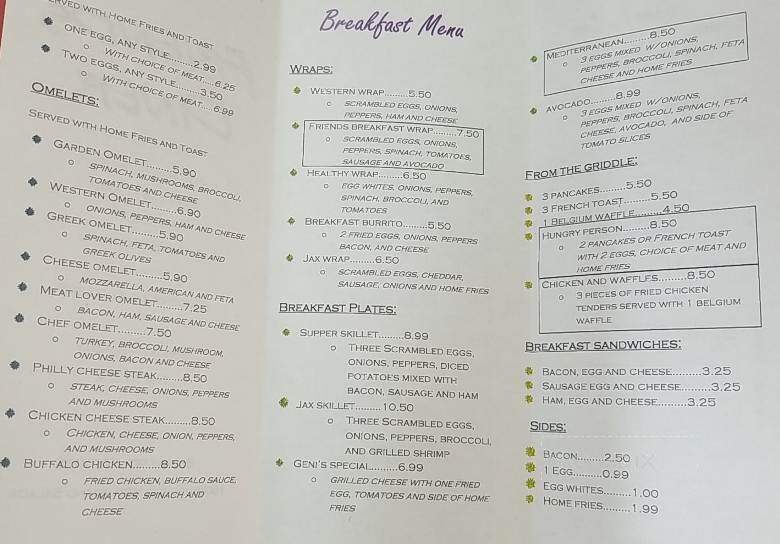 Served with Home Fries and Toast
One egg, any style.........2.99
With choice of meat....6.25
Two eggs, any style.........3.50
With choice of meat....6.99
Omelets:
Served with Home Fries and Toast
Garden Omelet.........5.90
spinach, mushrooms, broccoli,
tomatoes and cheese
Western Omelet.........6.90
onions, peppers, ham and cheese
Greek omelet.........5.90
spinach, feta, tomatoes and
greek olives
Cheese omelet.........5.90
mozzarella, american and feta
Meat lover omelet.........7.25
bacon, ham, sausage and cheese
Chef omelet.........7.50
turkey, broccoli, mushroom,
onions, bacon and cheese
Philly cheese steak.........8.50
steak, cheese, onions, peppers
and mushrooms
Chicken cheese steak.........8.50
Chicken, cheese, onion, peppers,
and mushrooms
Buffalo chicken.........8.50
fried chicken, buffalo sauce,
tomatoes, spinach and
cheese
Breakfast Menu
Wraps:
Western wrap.........5.50
scrambled eggs, onions,
peppers, ham and cheese
Friends breakfast wrap.........7.50
scrambled eggs, onions,
peppers, spinach, tomatoes,
sausage and avocado
Healthy wrap.........6.50
egg whites, onions, peppers,
spinach, broccoli, and
tomatoes
Breakfast burrito.........5.50
2 fried eggs, onions, peppers
bacon, and cheese
Jax wrap.........6.50
scrambled eggs, cheddar,
sausage, onions and home fries
Breakfast Plates:
Supper skillet.........8.99
Three Scrambled eggs,
onions, peppers, diced
potatoes mixed with
bacon, sausage and ham
Jax skillet.........10.50
Three Scrambled eggs,
onions, peppers, broccoli,
and grilled shrimp
Geni's special.........6.99
grilled cheese with one fried
egg, tomatoes and side of home
fries
Mediterranean.........8.50
3 eggs mixed w/onions,
peppers, broccoli, spinach, feta
cheese and home fries
avocado.........8.99
3 eggs mixed w/onions,
peppers, broccoli, spinach, feta
cheese, avocado, and side of
tomato slices
From the griddle:
3 pancakes.........5.50
3 french toast.........5.50
1 belgium waffle.........4.50
Hungry person.........8.50
2 pancakes or French toast
with 2 eggs, choice of meat and
home fries
Chicken and waffles.........8.50
3 pieces of fried chicken
tenders served with 1 belgium
waffle
Breakfast sandwiches:
Bacon, egg and cheese.........3.25
Sausage egg and cheese.........3.25
Ham, egg and cheese.........3.25
Sides:
Bacon.........2.50
1 Egg.........0.99
Egg whites.........1.00
Home fries.........1.99